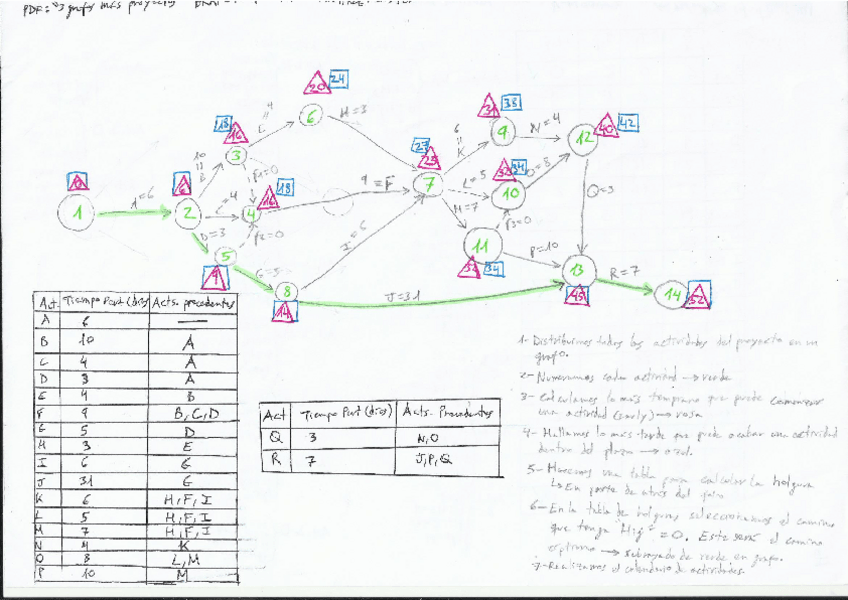 PDF: "3 grafos más proyectos
20 24
6
4 = L
H=3
18 16
3
10 = B
F1=0
31 38
9
N=4
12
40 42
6 = K
27 25
7
L=5
32 34
10
O=8
0
1
A=6
6
2
4
4
16 18
9 = F
D=3
F2=0
5
9
G=5
I=6
M=7
F3=0
11
32 34
P=10
Q=3
13
45
R=7
14
52
8
14
J=31
Act. Tiempo Part (días) Acts. precedentes
A 6 —
B 10 A
C 4 A
D 3 A
E 4 B
F 9 B, C, D
G 5 D
H 3 E
I 6 G
J 31 G
K 6 H, F, I
L 5 H, F, I
M 7 H, F, I
N 4 K
O 8 L, M
P 10 M
Act Tiempo Part (días) Acts. Precedentes
Q 3 N, O
R 7 J, P, Q
1- Distribuimos todas las actividades del proyecto en un
grafo.
2- Numeramos cada actividad → verde
3- Calculamos lo más temprano que puede comenzar
una actividad (early) → rosa
4- Hallamos lo más tarde que puede acabar una actividad
dentro del plazo → azul.
5- Hacemos una tabla para calcular la holgura
↳ En parte de atrás del folio
6- En la tabla de holguras seleccionamos el camino
que tenga "Hig" = 0. Este será el camino
optimo → subrayado de verde en grafo.
7- Realizamos el calendario de actividades.